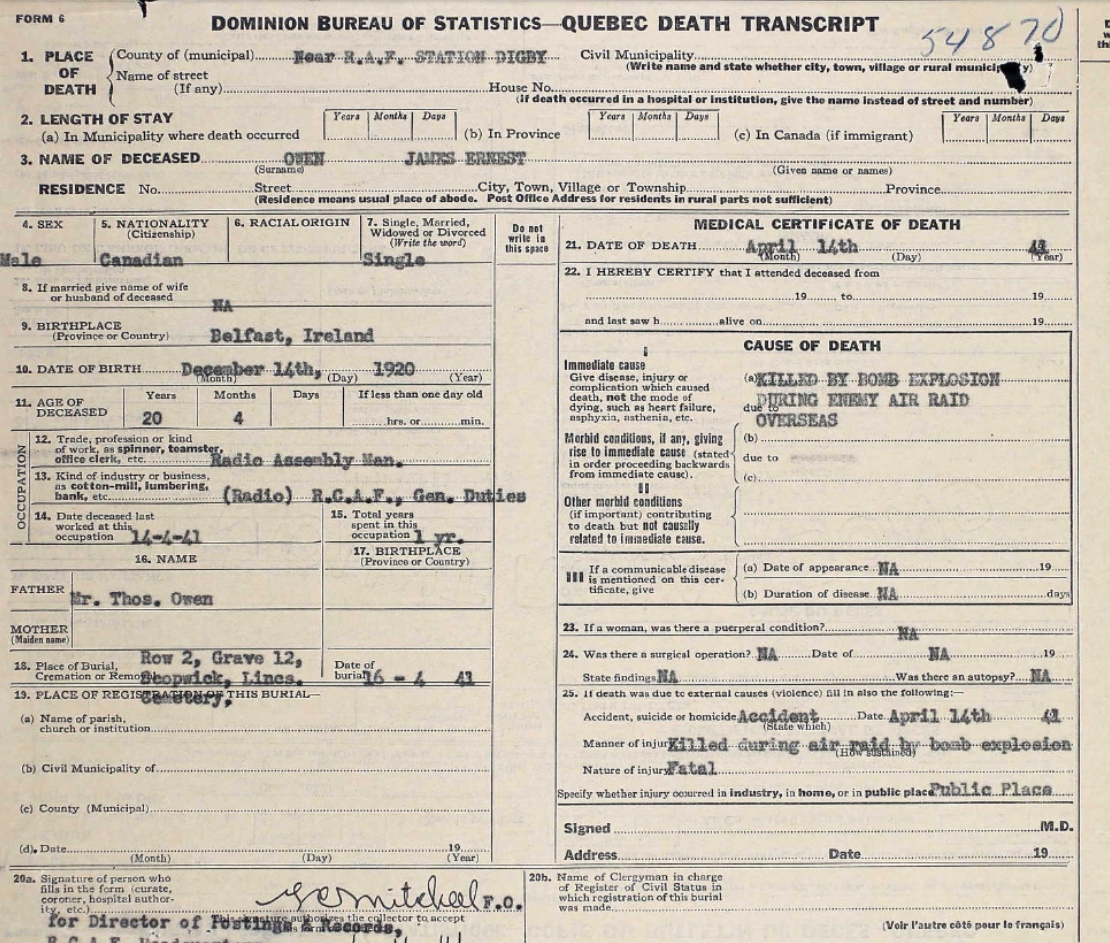 FORM 6
DOMINION BUREAU OF STATISTICS—QUEBEC DEATH TRANSCRIPT
54870
1. PLACE OF DEATH
County of (municipal) Near R.A.F. STATION DIGBY Civil Municipality
(Write name and state whether city, town, village or rural municipality)
Name of street
(If any) House No.
(If death occurred in a hospital or institution, give the name instead of street and number)
2. LENGTH OF STAY
(a) In Municipality where death occurred Years Months Days (b) In Province Years Months Days (c) In Canada (if immigrant) Years Months Days
3. NAME OF DECEASED OWEN JAMES ERNEST
(Surname) (Given name or names)
RESIDENCE No. Street City, Town, Village or Township Province
(Residence means usual place of abode. Post Office Address for residents in rural parts not sufficient)
4. SEX
Male
5. NATIONALITY
(Citizenship)
Canadian
6. RACIAL ORIGIN
7. Single, Married,
Widowed or Divorced
(Write the word)
Single
Do not
write in
this space
8. If married give name of wife
or husband of deceased
NA
9. BIRTHPLACE
(Province or Country) Belfast, Ireland
10. DATE OF BIRTH December 14th, 1920
(Month) (Day) (Year)
11. AGE OF
DECEASED
Years Months Days If less than one day old
20 4 hrs. or min.
OCCUPATION
12. Trade, profession or kind
of work, as spinner, teamster,
office clerk, etc. Radio Assembly Man.
13. Kind of industry or business,
as cotton-mill, lumbering,
bank, etc. (Radio) R.C.A.F., Gen. Duties
14. Date deceased last
worked at this
occupation 14-4-41
15. Total years
spent in this
occupation 1 yr.
16. NAME
17. BIRTHPLACE
(Province or Country)
FATHER Mr. Thos. Owen
MOTHER
(Maiden name)
18. Place of Burial,
Cremation or Removal
Row 2, Grave 12,
Scopwick, Lincs.
Cemetery,
Date of
burial 16 - 4 41
19. PLACE OF REGISTRATION OF THIS BURIAL—
(a) Name of parish,
church or institution
(b) Civil Municipality of
(c) County (Municipal)
(d) Date 19
(Month) (Day) (Year)
20a. Signature of person who
fills in the form (curate,
coroner, hospital author-
ity, etc.)
Mitchell F.O.
This signature authorizes the collector to accept
for Director of Postings & Records,
MEDICAL CERTIFICATE OF DEATH
21. DATE OF DEATH April 14th 41
(Month) (Day) (Year)
22. I HEREBY CERTIFY that I attended deceased from
19 to 19
and last saw h alive on 19
CAUSE OF DEATH
I
Immediate cause
Give disease, injury or
complication which caused
death, not the mode of
dying, such as heart failure,
asphyxia, asthenia, etc.
(a) KILLED BY BOMB EXPLOSION
DURING ENEMY AIR RAID
due to
OVERSEAS
Morbid conditions, if any, giving
rise to immediate cause (stated
in order proceeding backwards
from immediate cause).
(b)
due to
(c)
II
Other morbid conditions
(if important) contributing
to death but not causally
related to immediate cause.
III If a communicable disease
is mentioned on this cer-
tificate, give
(a) Date of appearance NA 19
(b) Duration of disease NA days
23. If a woman, was there a puerperal condition? NA
24. Was there a surgical operation? NA Date of NA 19
State findings NA Was there an autopsy? NA
25. If death was due to external causes (violence) fill in also the following:—
Accident, suicide or homicide Accident Date April 14th 41
(State which)
Manner of injury Killed during air raid by bomb explosion
(How sustained)
Nature of injury Fatal
Specify whether injury occurred in industry, in home, or in public place Public Place
Signed M.D.
Address Date 19
20b. Name of Clergyman in charge
of Register of Civil Status in
which registration of this burial
was made
(Voir l'autre côté pour le français)